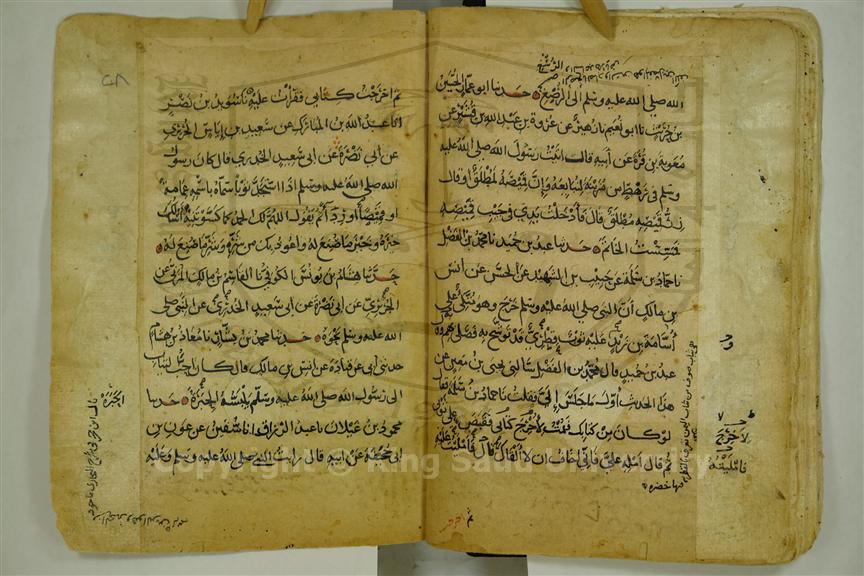 الله صلى الله عليه وسلم الى الرسغ حدثنا ابو عمار الحسين
بن حريث نا ابو نعيم نا زهير عن عروة بن عبد الله بن قشير عن
معوية بن قرة عن ابيه قال اتيت رسول الله صلى الله عليه
وسلم في رهط من مزينة لنبايعه وان قميصه لمطلق او قال
زر قميصه مطلق قال فادخلت يدي في جيب قميصه
فمسست الخاتم حدثنا عبد بن حميد نا محمد بن الفضل
نا حماد بن سلمة عن حبيب بن الشهيد عن الحسن عن انس
بن مالك ان النبي صلى الله عليه وسلم خرج وهو متكئ على
اسامة بن زيد عليه ثوب قطري قد توشح به فصلى بهم
عبد بن حميد قال محمد بن الفضل سالني يحيى بن معين عن
هذا الحديث اول ما جلس الي فقلت نا حماد بن سلمة فقال
لو كان من كتابك فقمت لاخرج كتابي فقبض على ثوبي
ثم قال امله علي فاني اخاف ان لا القاك قال فامليته عليه
لاخرج
فامليته
ثم اخرجت كتابي فقرات عليه نا سويد بن نصر
انا عبد الله بن المبارك عن سعيد بن اياس الجريري
عن ابي نضرة عن ابي سعيد الخدري قال كان رسول
الله صلى الله عليه وسلم اذا استجد ثوبا سماه باسمه عمامة
او قميصا او رداء ثم يقول اللهم لك الحمد كما كسوتنيه اسالك
خيره وخير ما صنع له واعوذ بك من شره وشر ما صنع له
حدثنا هشام بن يونس الكوفي نا القاسم بن مالك المزني عن
الجريري عن ابي نضرة عن ابي سعيد الخدري عن النبي صلى
الله عليه وسلم نحوه حدثنا محمد بن بشار نا معاذ بن هشام
حدثني ابي عن قتادة عن انس بن مالك قال كان احب الثياب
الى رسول الله صلى الله عليه وسلم يلبسه الحبرة حدثنا
محمود بن غيلان نا عبد الرزاق انا سفين عن عون بن
ابي جحيفة عن ابيه قال رايت النبي صلى الله عليه وسلم وعليه
الحبرة
Copyright © King Saud University